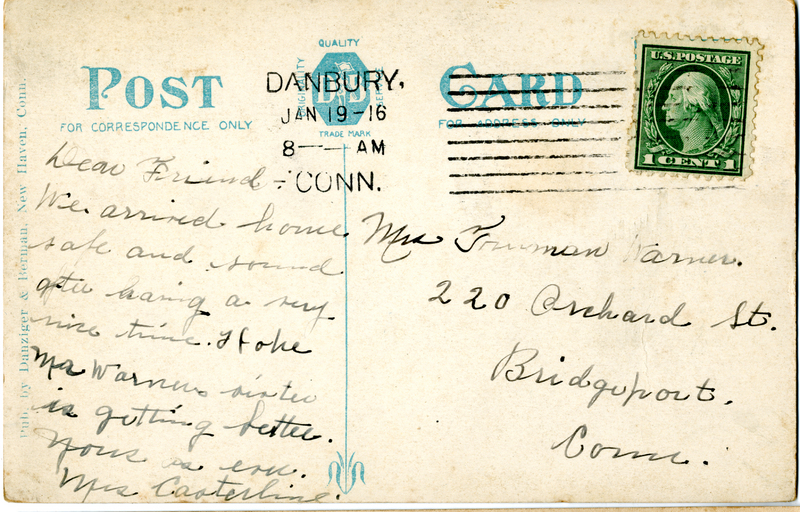 QUALITY
POST CARD
D & B
ORIGINALITY
SERVICE
TRADE MARK
FOR CORRESPONDENCE ONLY
FOR ADDRESS ONLY
DANBURY,
JAN 19-16
8 — AM
CONN.
U.S. POSTAGE
1 CENT 1
Pub. by Danziger & Berman, New Haven, Conn.
Dear Friend -
We arrived home
safe and sound
after having a very
nice time. Hope
Mr Warners sister
is getting better.
Yours as ever.
Mrs Casterline.
Mrs Truman Warner.
220 Orchard St.
Bridgeport.
Conn.